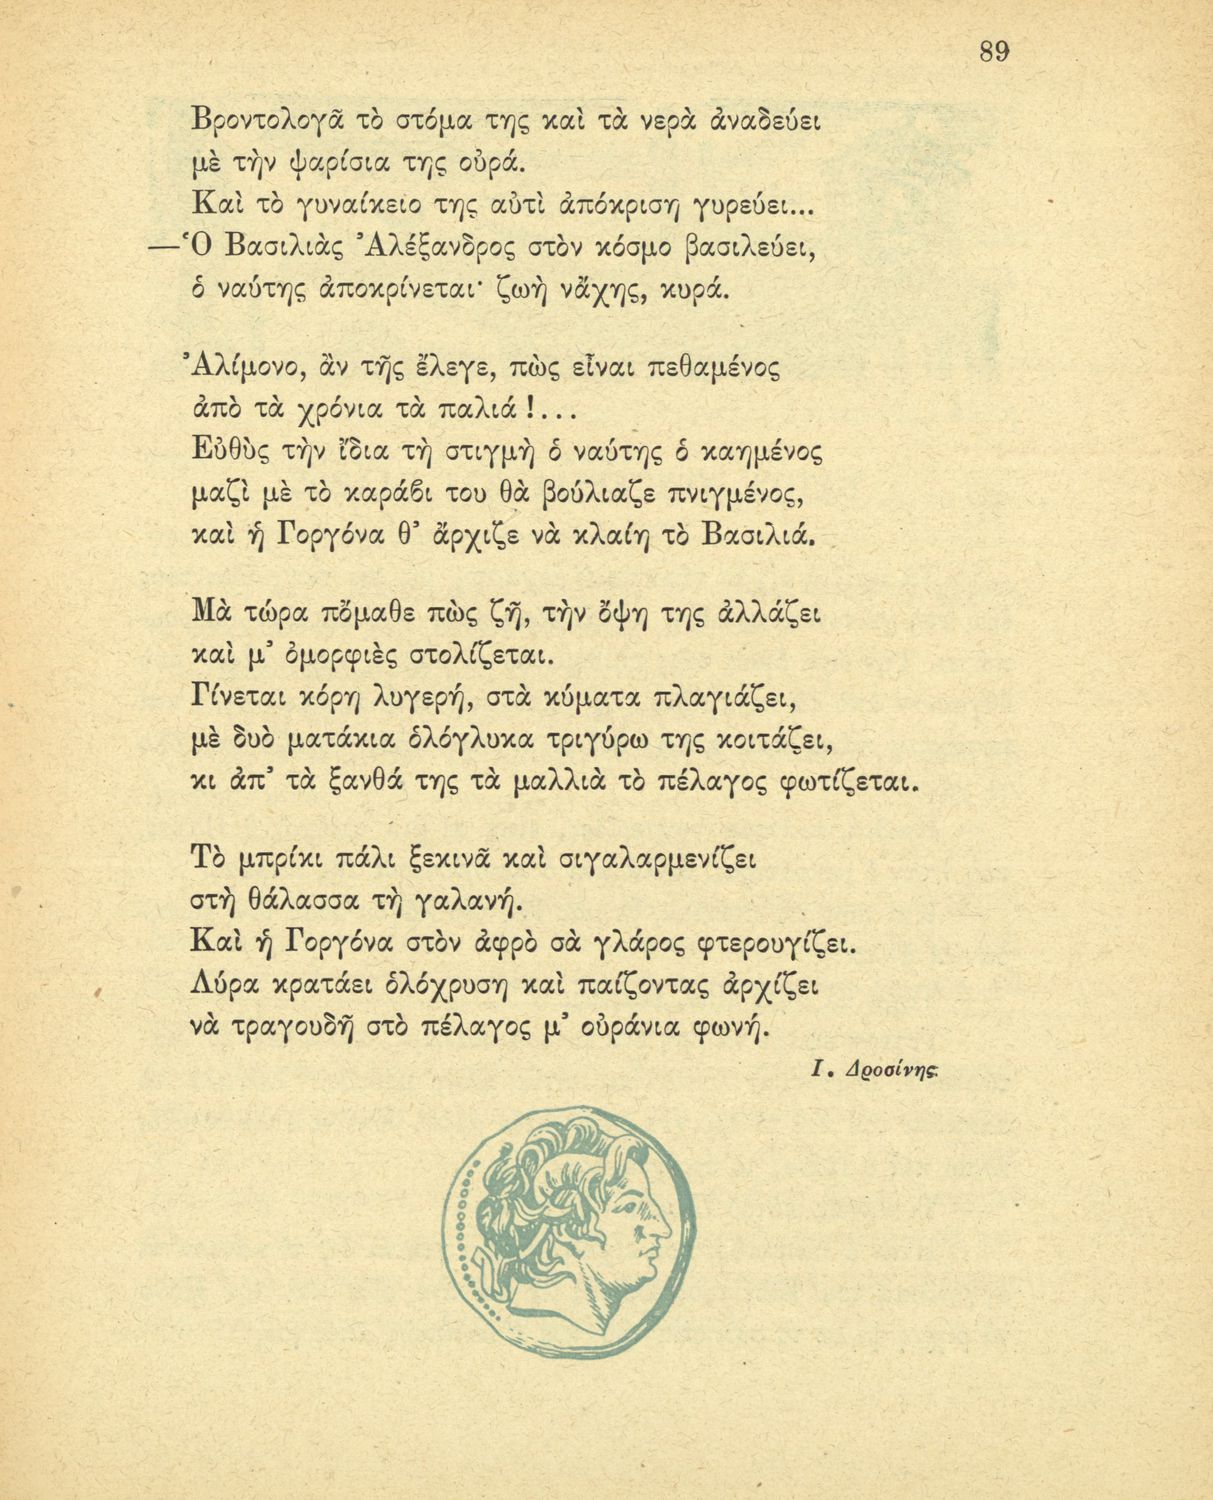 89
Βροντολογᾶ τὸ στόμα της καὶ τὰ νερὰ ἀναδεύει
μὲ τὴν ψαρίσια της οὐρά.
Καὶ τὸ γυναίκειο της αὐτὶ ἀπόκριση γυρεύει...
—Ὁ Βασιλιὰς Ἀλέξανδρος στὸν κόσμο βασιλεύει,
ὁ ναύτης ἀποκρίνεται· ζωὴ νἄχης, κυρά.
Ἀλίμονο, ἂν τῆς ἔλεγε, πὼς εἶναι πεθαμένος
ἀπὸ τὰ χρόνια τὰ παλιά !...
Εὐθὺς τὴν ἴδια τὴ στιγμὴ ὁ ναύτης ὁ καημένος
μαζὶ μὲ τὸ καράϐι του θὰ βούλιαζε πνιγμένος,
καὶ ἡ Γοργόνα θ’ ἄρχιζε νὰ κλαίη τὸ Βασιλιά.
Μὰ τώρα πὄμαθε πὼς ζῆ, τὴν ὄψη της ἀλλάζει
καὶ μ’ ὀμορφιὲς στολίζεται.
Γίνεται κόρη λυγερή, στὰ κύματα πλαγιάζει,
μὲ δυὸ ματάκια ὁλόγλυκα τριγύρω της κοιτάζει,
κι ἀπ’ τὰ ξανθά της τὰ μαλλιὰ τὸ πέλαγος φωτίζεται.
Τὸ μπρίκι πάλι ξεκινᾶ καὶ σιγαλαρμενίζει
στὴ θάλασσα τὴ γαλανή.
Καὶ ἡ Γοργόνα στὸν ἀφρὸ σὰ γλάρος φτερουγίζει.
Λύρα κρατάει ὁλόχρυση καὶ παίζοντας ἀρχίζει
νὰ τραγουδῆ στὸ πέλαγος μ’ οὐράνια φωνή.
Ι. Δροσίνης.